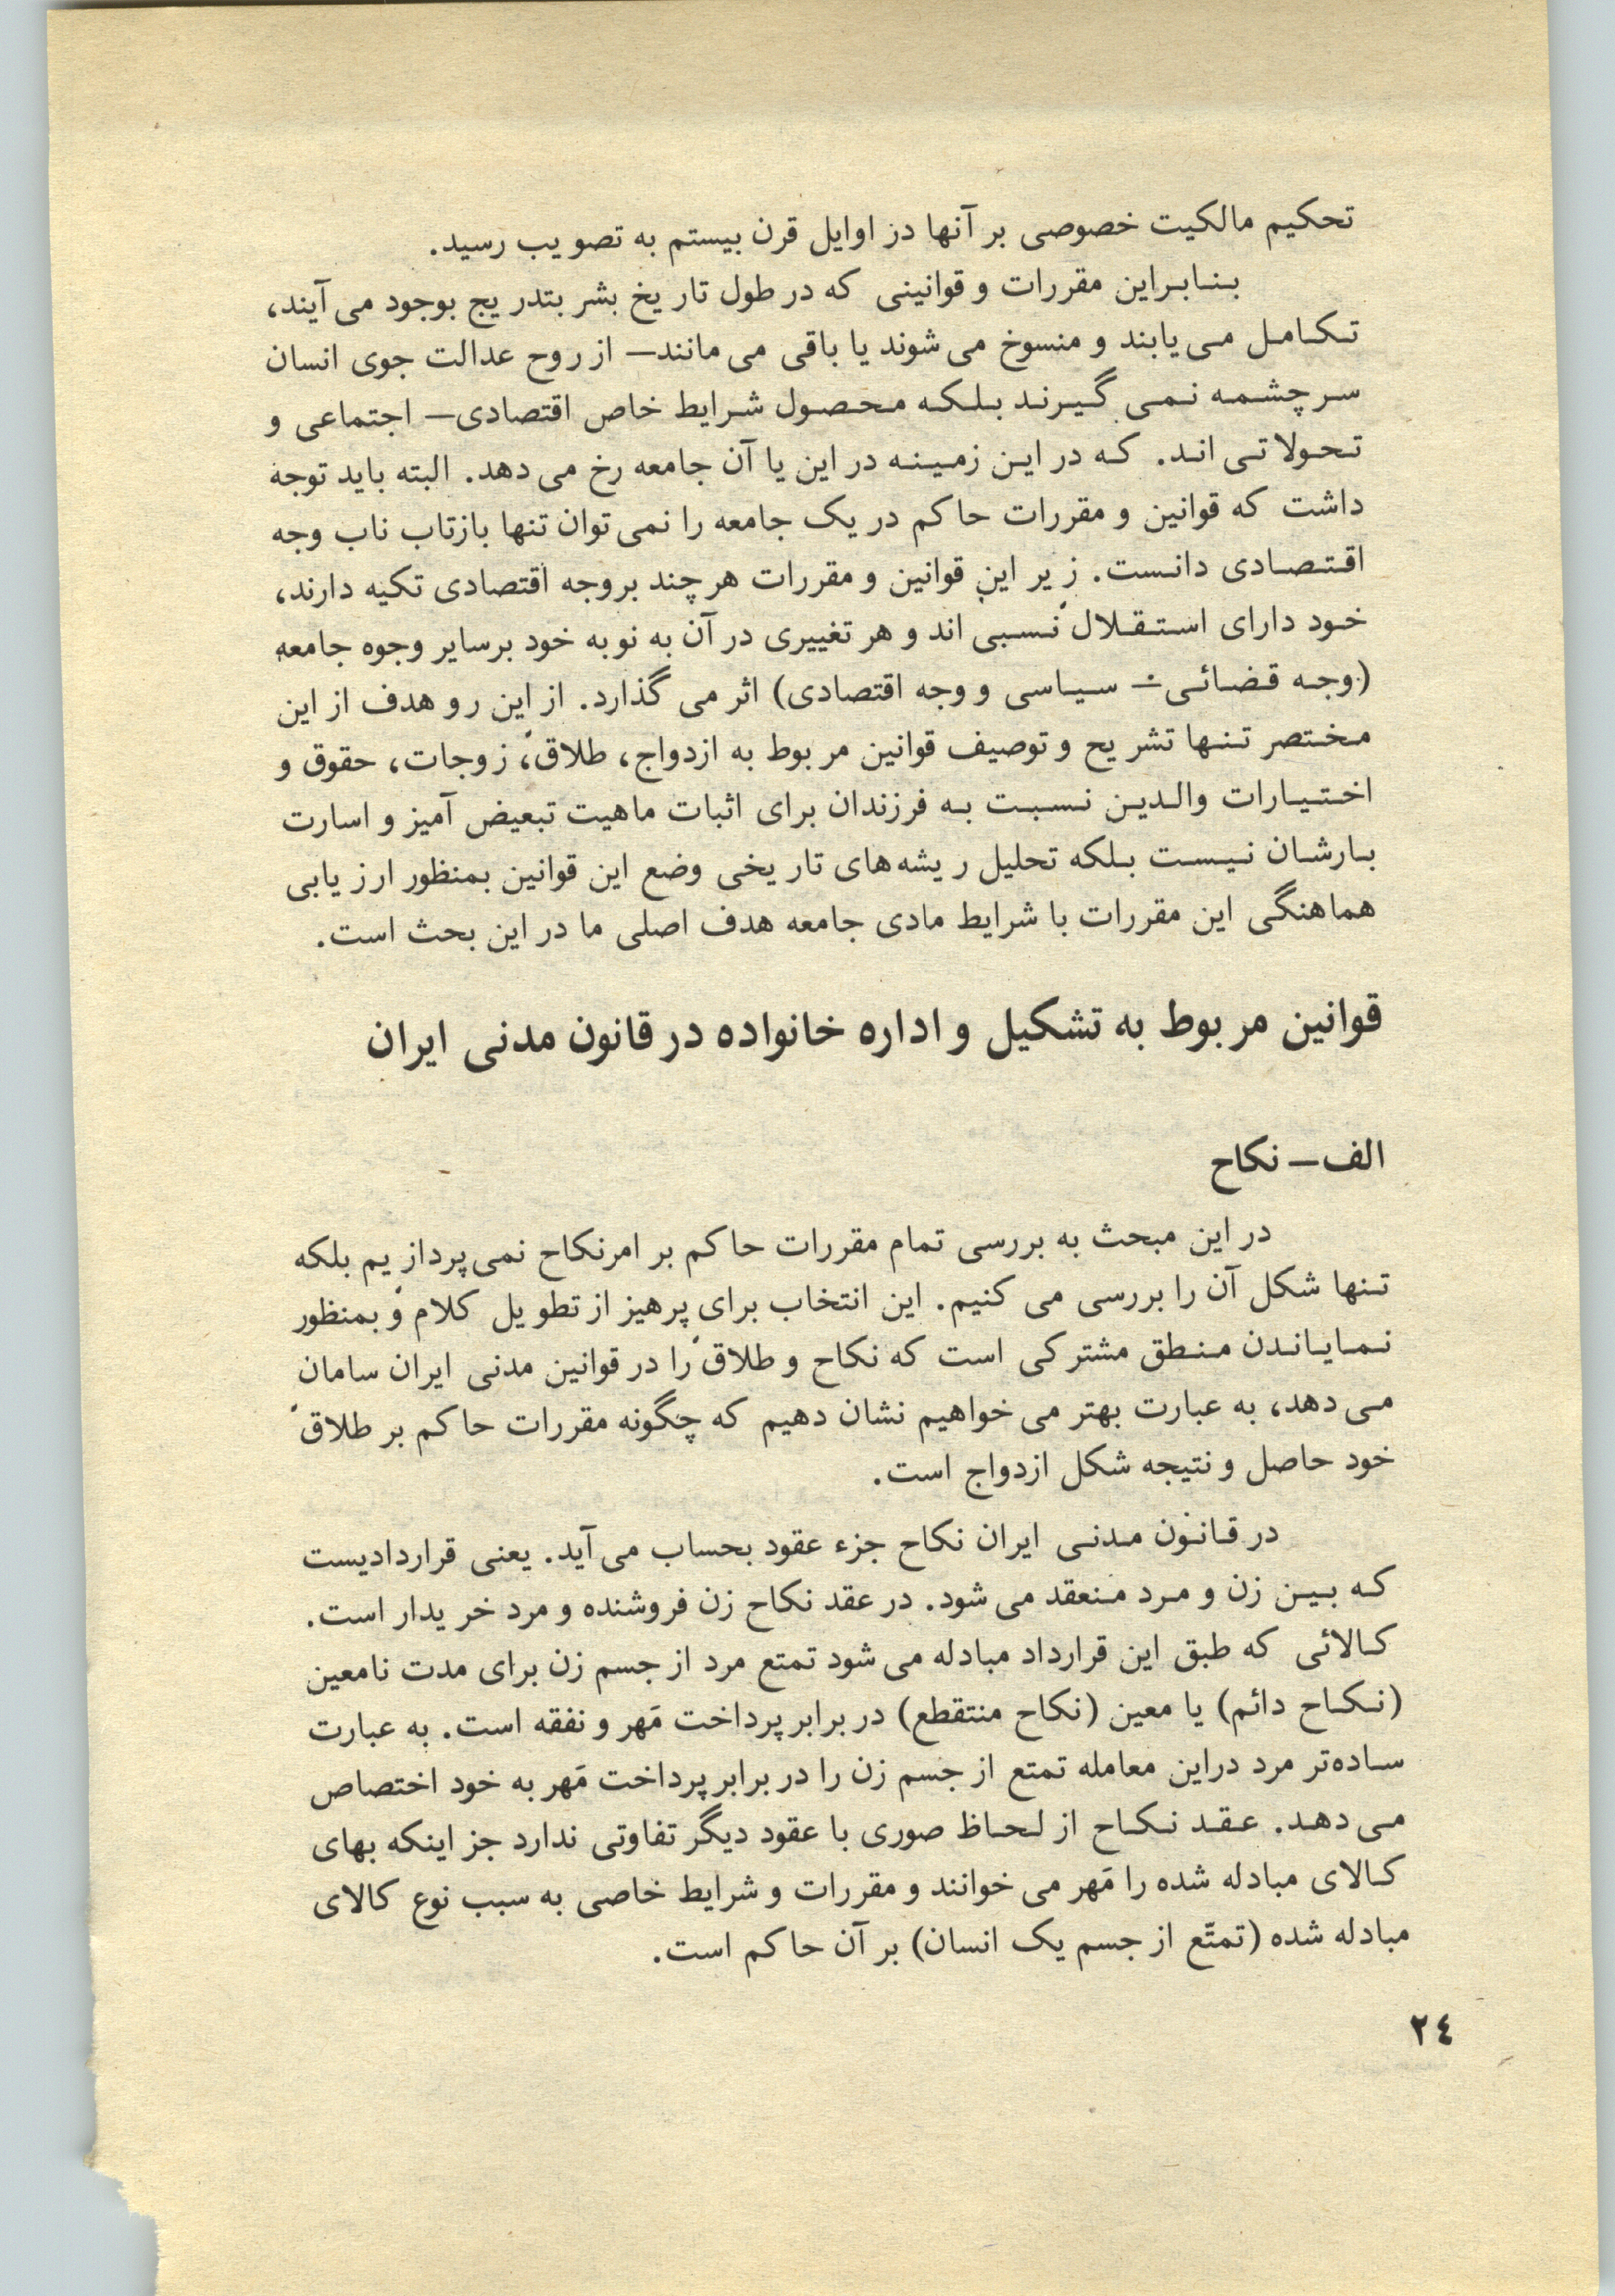 تحکیم مالکیت خصوصی بر آنها در اوایل قرن بیستم به تصویب رسید.
بنابراین مقررات و قوانینی که در طول تاریخ بشر بتدریج بوجود می آیند،
تکامل می یابند و منسوخ می شوند یا باقی می مانند— از روح عدالت جوی انسان
سرچشمه نمی گیرند بلکه محصول شرایط خاص اقتصادی— اجتماعی و
تحولاتی اند. که در این زمینه در این یا آن جامعه رخ می دهد. البته باید توجه
داشت که قوانین و مقررات حاکم در یک جامعه را نمی توان تنها بازتاب ناب وجه
اقتصادی دانست. زیر این قوانین و مقررات هر چند بر وجه اقتصادی تکیه دارند،
خود دارای استقلال نسبی اند و هر تغییری در آن به نوبه خود برسایر وجوه جامعه
(وجه قضائی— سیاسی و وجه اقتصادی) اثر می گذارد. از این رو هدف از این
مختصر تنها تشریح و توصیف قوانین مربوط به ازدواج، طلاق، زوجات، حقوق و
اختیارات والدین نسبت به فرزندان برای اثبات ماهیت تبعیض آمیز و اسارت
بارشان نیست بلکه تحلیل ریشه های تاریخی وضع این قوانین بمنظور ارزیابی
هماهنگی این مقررات با شرایط مادی جامعه هدف اصلی ما در این بحث است.
قوانین مربوط به تشکیل و اداره خانواده در قانون مدنی ایران
الف— نکاح
در این مبحث به بررسی تمام مقررات حاکم بر امرنکاح نمی پردازیم بلکه
تنها شکل آن را بررسی می کنیم. این انتخاب برای پرهیز از تطویل کلام و بمنظور
نمایاندن منطق مشترکی است که نکاح و طلاق را در قوانین مدنی ایران سامان
می دهد، به عبارت بهتر می خواهیم نشان دهیم که چگونه مقررات حاکم بر طلاق
خود حاصل و نتیجه شکل ازدواج است.
در قانون مدنی ایران نکاح جزء عقود بحساب می آید. یعنی قراردادیست
که بین زن و مرد منعقد می شود. در عقد نکاح زن فروشنده و مرد خریدار است.
کالائی که طبق این قرارداد مبادله می شود تمتع مرد از جسم زن برای مدت نامعین
(نکاح دائم) یا معین (نکاح منتقطع) در برابر پرداخت مَهر و نفقه است. به عبارت
ساده تر مرد دراین معامله تمتع از جسم زن را در برابر پرداخت مَهر به خود اختصاص
می دهد. عقد نکاح از لحاظ صوری با عقود دیگر تفاوتی ندارد جز اینکه بهای
کالای مبادله شده را مَهر می خوانند و مقررات و شرایط خاصی به سبب نوع کالای
مبادله شده (تمتّع از جسم یک انسان) بر آن حاکم است.
٢٤